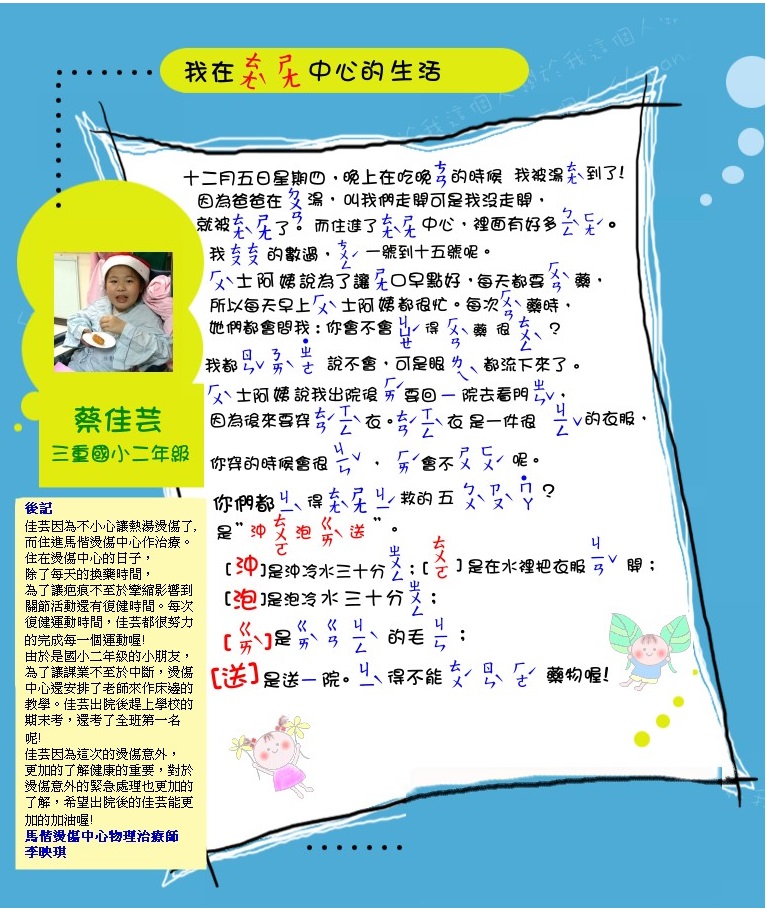 我在ㄊㄤˋ ㄕㄤ中心的生活
十二月五日星期四，晚上在吃晚ㄘㄢ的時候 我被湯ㄊㄤˋ到了!
因為爸爸在ㄆㄢ湯，叫我們走開可是我沒走開，
就被ㄊㄤˋㄕㄤ了。而住進了ㄊㄤˋㄕㄤ中心，裡面有好多ㄅㄥˋㄈㄤˊ。
我ㄊㄊ的數過，ㄘㄨㄥˊ一號到十五號呢。
ㄏㄨˋ士阿姨說為了讓ㄕㄤ口早點好，每天都要ㄏㄨㄢˋ藥，
所以每天早上ㄏㄨˋ士阿姨都很忙。每次ㄏㄨㄢˋ藥時，
她們都會問我：你會不會ㄐㄩㄝˊ得ㄏㄨㄢˋ藥很ㄊㄨㄥˋ？
我都ㄖㄣˇㄋㄞˋ˙ㄓㄜ 說不會，可是眼ㄌㄟˋ都流下來了。
ㄏㄨˋ士阿姨說我出院後ㄏㄞˊ要回一院去看門ㄓㄣˇ，
因為後來要穿ㄊㄢˊㄒㄧㄥˋ衣。ㄊㄢˊㄒㄧㄥˋ衣是一件很ㄐㄧㄥˇ的衣服，
你穿的時候會很ㄐㄧㄣˇ，ㄏㄞˊ會不ㄕㄨㄈㄨˊ呢。
你們都ㄐㄧˋ得ㄊㄤˋㄕㄤㄐㄧˊ救的五ㄅㄨˋㄗㄡˋ˙ㄇㄚ？
是”沖ㄊㄨㄛ泡ㄍㄞˋ送”。
[沖]是沖冷水三十分ㄓㄨㄥ；[ㄊㄨㄛ]是在水裡把衣服ㄐㄧㄢˇ開；
[泡]是泡冷水三十分ㄓㄨㄥ；
[ㄍㄞˋ]是ㄍㄞˋㄍㄢㄐㄧㄥˋ的毛ㄐㄧㄣ；
[送]是送一院。ㄐㄧˋ得不能ㄊㄨˊㄖㄣˋㄏㄜˊ藥物喔!
蔡佳芸
三重國小二年級
後記
佳芸因為不小心讓熱湯燙傷了,
而住進馬偕燙傷中心作治療。
住在燙傷中心的日子，
除了每天的換藥時間，
為了讓疤痕不至於攣縮影響到
關節活動還有復健時間。每次
復健運動時間，佳芸都很努力
的完成每一個運動喔!
由於是國小二年級的小朋友，
為了讓課業不至於中斷，燙傷
中心還安排了老師來作床邊的
教學。佳芸出院後趕上學校的
期末考，還考了全班第一名
呢!
佳芸因為這次的燙傷意外，
更加的了解健康的重要，對於
燙傷意外的緊急處理也更加的
了解，希望出院後的佳芸能更
加的加油喔!
馬偕燙傷中心物理治療師
李映琪